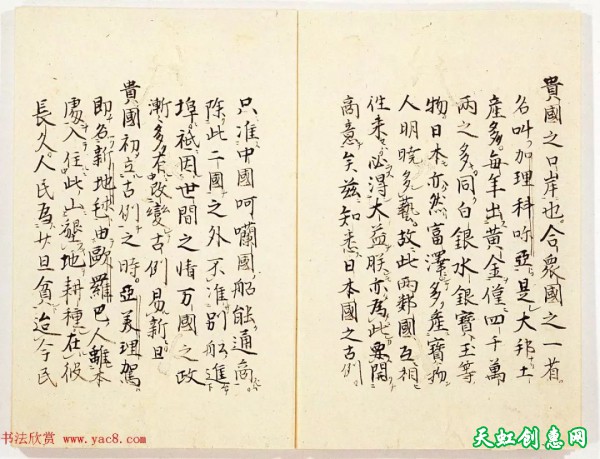 貴國之口岸也合衆國之一省
名叫加理科哖亞是大邦土
産多每年出黃金僅四千萬
兩之多同白銀水銀寶玉等
物日本亦然富澤多產寶物
人明曉多藝故此兩鄰國互相
徃来必得大益朕亦為此要開
商意矣兹知悉日本國之古例
只准中國呵囒國船能通商
除此二國之外不准別船進
埠祗因世間之情万國之政
漸多有改變古例易新且
貴國初立古例之時亞美理駕
即名新地毬由歐羅巴人離本
處入住此山墾地耕種在彼
長久人民為少且貧迨今民
书法欣赏 www.yac8.com
天虹创意网